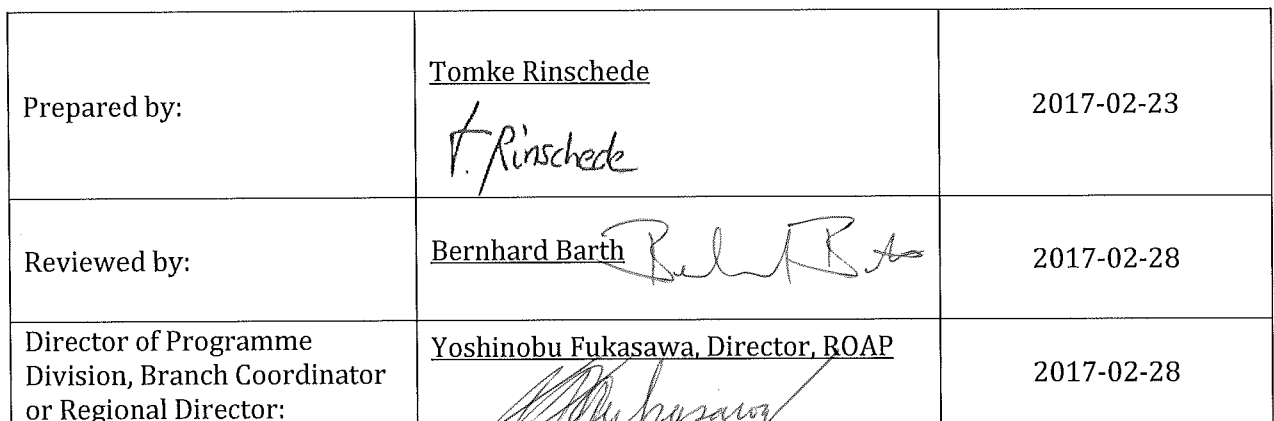 Prepared by:
Tomke Rinschede
T. Rinschede
2017-02-23
Reviewed by:
Bernhard Barth
2017-02-28
Director of Programme
Division, Branch Coordinator
or Regional Director:
Yoshinobu Fukasawa, Director, ROAP
2017-02-28